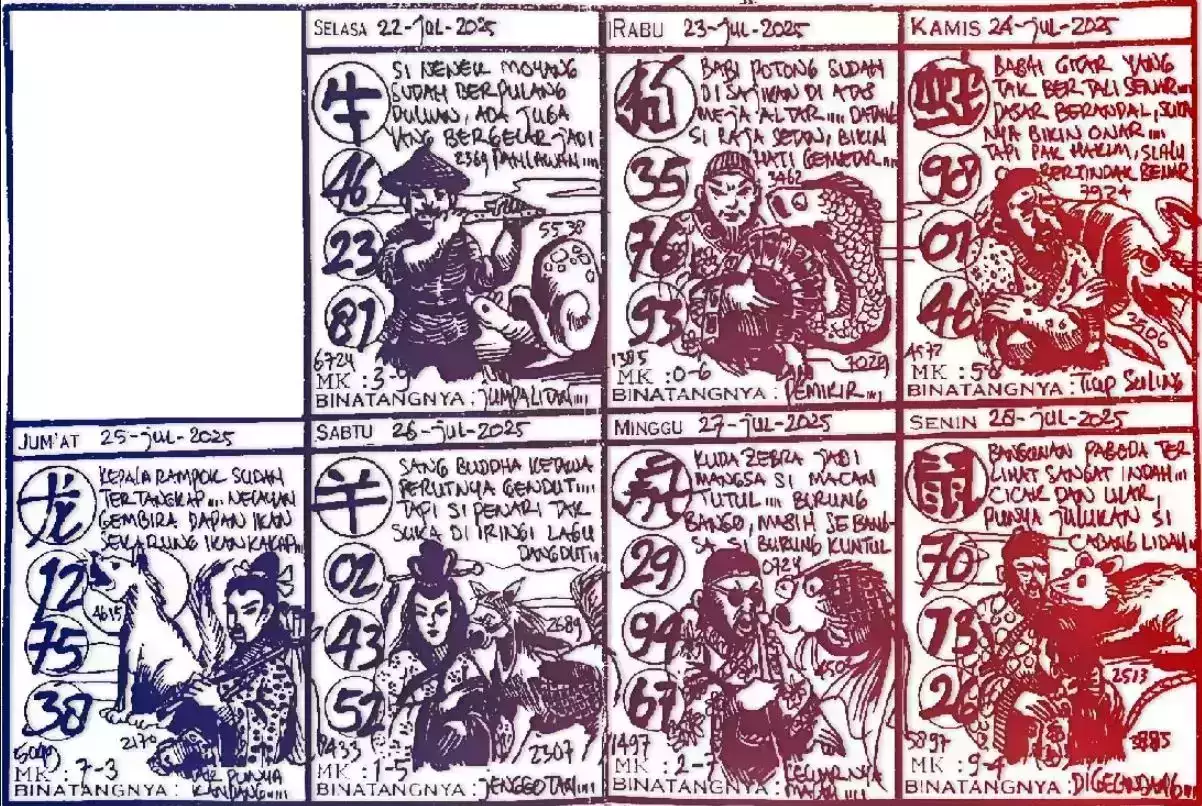 SELASA 22-JUL-2025
牛
SI NENEK MOYANG
SUDAH BERPULANG
DULUAN, ADA JUGA
YANG BERGELAR JADI
2369 PAHLAWAN....
46
23
5538
87
6724
MK : 3-9
BINATANGNYA : JUMPALITAN....
RABU 23-JUL-2025
狗
BABI POTONG SUDAH
DI SAJIKAN DI ATAS
MEJA ALTAR.... DATANG
SI RAJA SETAN, BIKIN
HATI GEMETAR....
3462
35
76
93
1385
7029
MK : 0-6
BINATANGNYA : PEMIKIR....
KAMIS 24-JUL-2025
蛇
BABAH GITAR YANG
TAK BERTALI SENAR....
DASAR BERANDAL, SUKA
NYA BIKIN ONAR....
TAPI PAK HAKIM, SLALU
BERTINDAK BENAR
7924
98
01
46
4577
MK : 5-8
BINATANGNYA : TIUP SULING
JUM'AT 25-JUL-2025
龙
KEPALA RAMPOK SUDAH
TERTANGKAP.... NELAYAN
GEMBIRA DAPAN IKAN
SEKARUNG IKAN KAKAP....
12
4615
75
38
2170
MK : 7-3
BINATANGNYA : PUNYA
KANDANG....
SABTU 26-JUL-2025
羊
SANG BUDDHA KETAWA
PERUTNYA GENDUT....
TAPI SI PENARI TAK
SUKA DI IRINGI LAGU
DANGDUT....
02
43
2689
52
1433
2307
MK : 1-5
BINATANGNYA : JENGGOTAN....
MINGGU 27-JUL-2025
KUDA ZEBRA JADI
MANGSA SI MACAN
TUTUL.... BURUNG
BANGO, MASIH SEBANG-
SA SI BURUNG KUNTUL
0724
29
94
67
1497
MK : 2-7
BINATANGNYA : KELUARNYA
MALAM....
SENIN 28-JUL-2025
鼠
BANGUNAN PAGODA TER
LIHAT SANGAT INDAH....
CICAK DAN ULAR,
PUNYA JULUKAN SI
CABANG LIDAH....
70
73
2513
26
5897
MK : 9-4
BINATANGNYA : DIGELANDANG....